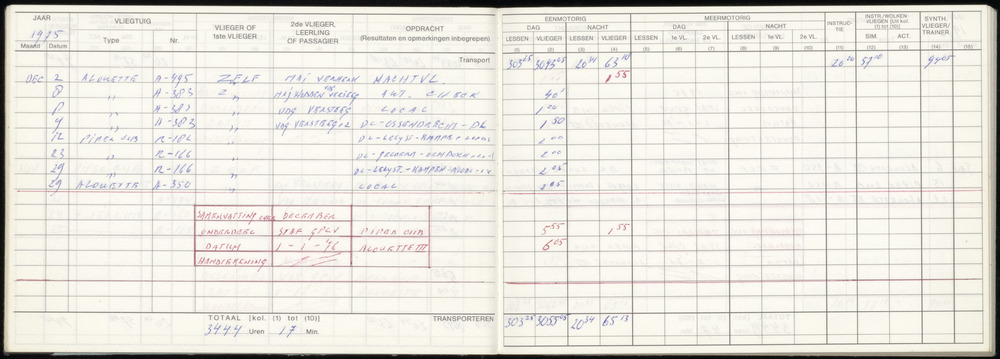 JAAR VLIEGTUIG VLIEGER OF 1ste VLIEGER 2de VLIEGER, LEERLING OF PASSAGIER OPDRACHT (Resultaten en opmerkingen inbegrepen) EENMOTORIG MEERMOTORIG INSTRUC-TIE INSTR./WOLKEN-VLIEGEN [Uit kol. (1) tot (10)] SYNTH. VLIEGER/TRAINER
1975 DAG NACHT DAG NACHT
Maand Datum Type Nr. LESSEN VLIEGER LESSEN VLIEGER LESSEN 1e VL. 2e VL. LESSEN 1e VL. 2e VL. SIM. ACT.
(1) (2) (3) (4) (5) (6) (7) (8) (9) (10) (11) (12) (13) (14) (15)
Transport 303 25 20 34 63 18 20 20
DEC 2 ALOUETTE A-495 ZELF MAJ NACHTVL. 1 55
8 " A-383 Z " MAJ CHECK 40
8 " A-383 " VDG VERSTEEG LOCAL 1 20
9 " A-383 " VDG VERSTEEG DL-OSSENDRECHT-DL 1 50
12 PIPER CUB R-182 " DL-LELYST-KAMPEN 2 00
23 " R-166 " 2 00
29 " R-166 " DL-LELYST-KAMPEN 2 05
29 ALOUETTE A-350 " LOCAL 2 05
SAMENVATTING OVER DECEMBER
ONDERDEEL PIPER CUB 5 55 1 55
DATUM 1-1-76 ALOUETTE III 6 05
HANDTEKENING
TOTAAL [kol. (1) tot (10)] TRANSPORTEREN 303 25 3055 20 34 65 13
3444 Uren 17 Min.